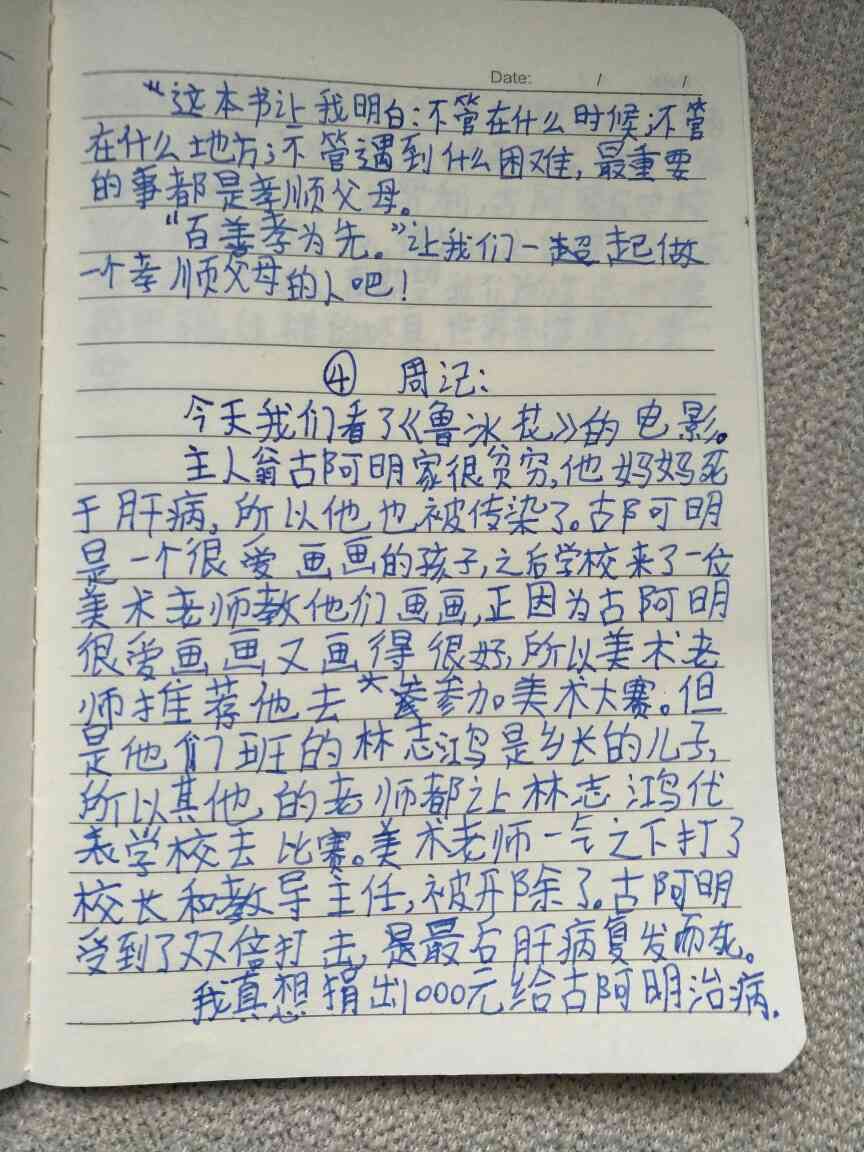 Date: / /
“这本书让我明白：不管在什么时候；不管
在什么地方；不管遇到什么困难，最重要
的事都是孝顺父母。
“百善孝为先。”让我们一起做
一个孝顺父母的人吧！
④ 周记：
今天我们看了《鲁冰花》的电影。
主人翁古阿明家很贫穷，他妈妈死
于肝病，所以他也被传染了。古阿明
是一个很爱画画的孩子，之后学校来了一位
美术老师教他们画画，正因为古阿明
很爱画画又画得很好，所以美术老
师推荐他去参加美术大赛。但
是他们班的林志鸿是乡长的儿子，
所以其他的老师都让林志鸿代
表学校去比赛。美术老师一气之下打了
校长和教导主任，被开除了。古阿明
受到了双倍打击，是最后肝病复发而死。
我真想捐出1000元给古阿明治病.